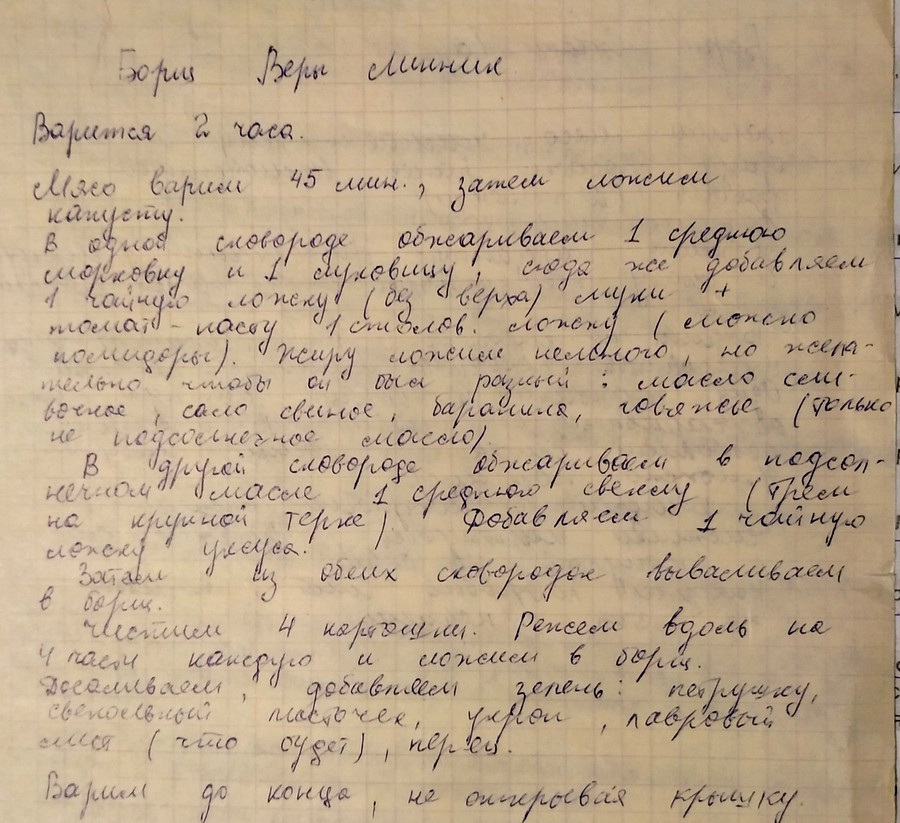 Борщ Веры Минник
Варится 2 часа.
Мясо варим 45 мин., затем ложим
капусту.
В одной сковороде обжариваем 1 среднюю
морковку и 1 луковицу, сюда же добавляем
1 чайную ложку (без верха) муки +
томат-пасту 1 столов. ложку (можно
помидоры). Жиру ложим немного, но жела-
тельно чтобы он был разный: масло сли-
вочное, сало свиное, баранина, говяжье (только
не подсолнечное масло).
В другой сковороде обжариваем в подсол-
нечном масле 1 среднюю свеклу (трем
на крупной терке). Добавляем 1 чайную
ложку уксуса.
Затем из обеих сковородок вываливаем
в борщ.
Чистим 4 картошки. Режем вдоль на
4 части каждую и ложим в борщ.
Досаливаем, добавляем зелень: петрушку,
свекольный листочек, укроп, лавровый
лист (что будет), перец.
Варим до конца, не открывая крышку.